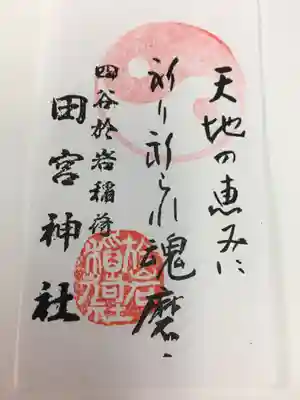 天地の恵みに
祈り祈られ魂磨く
四谷於岩稲荷
田宮神社